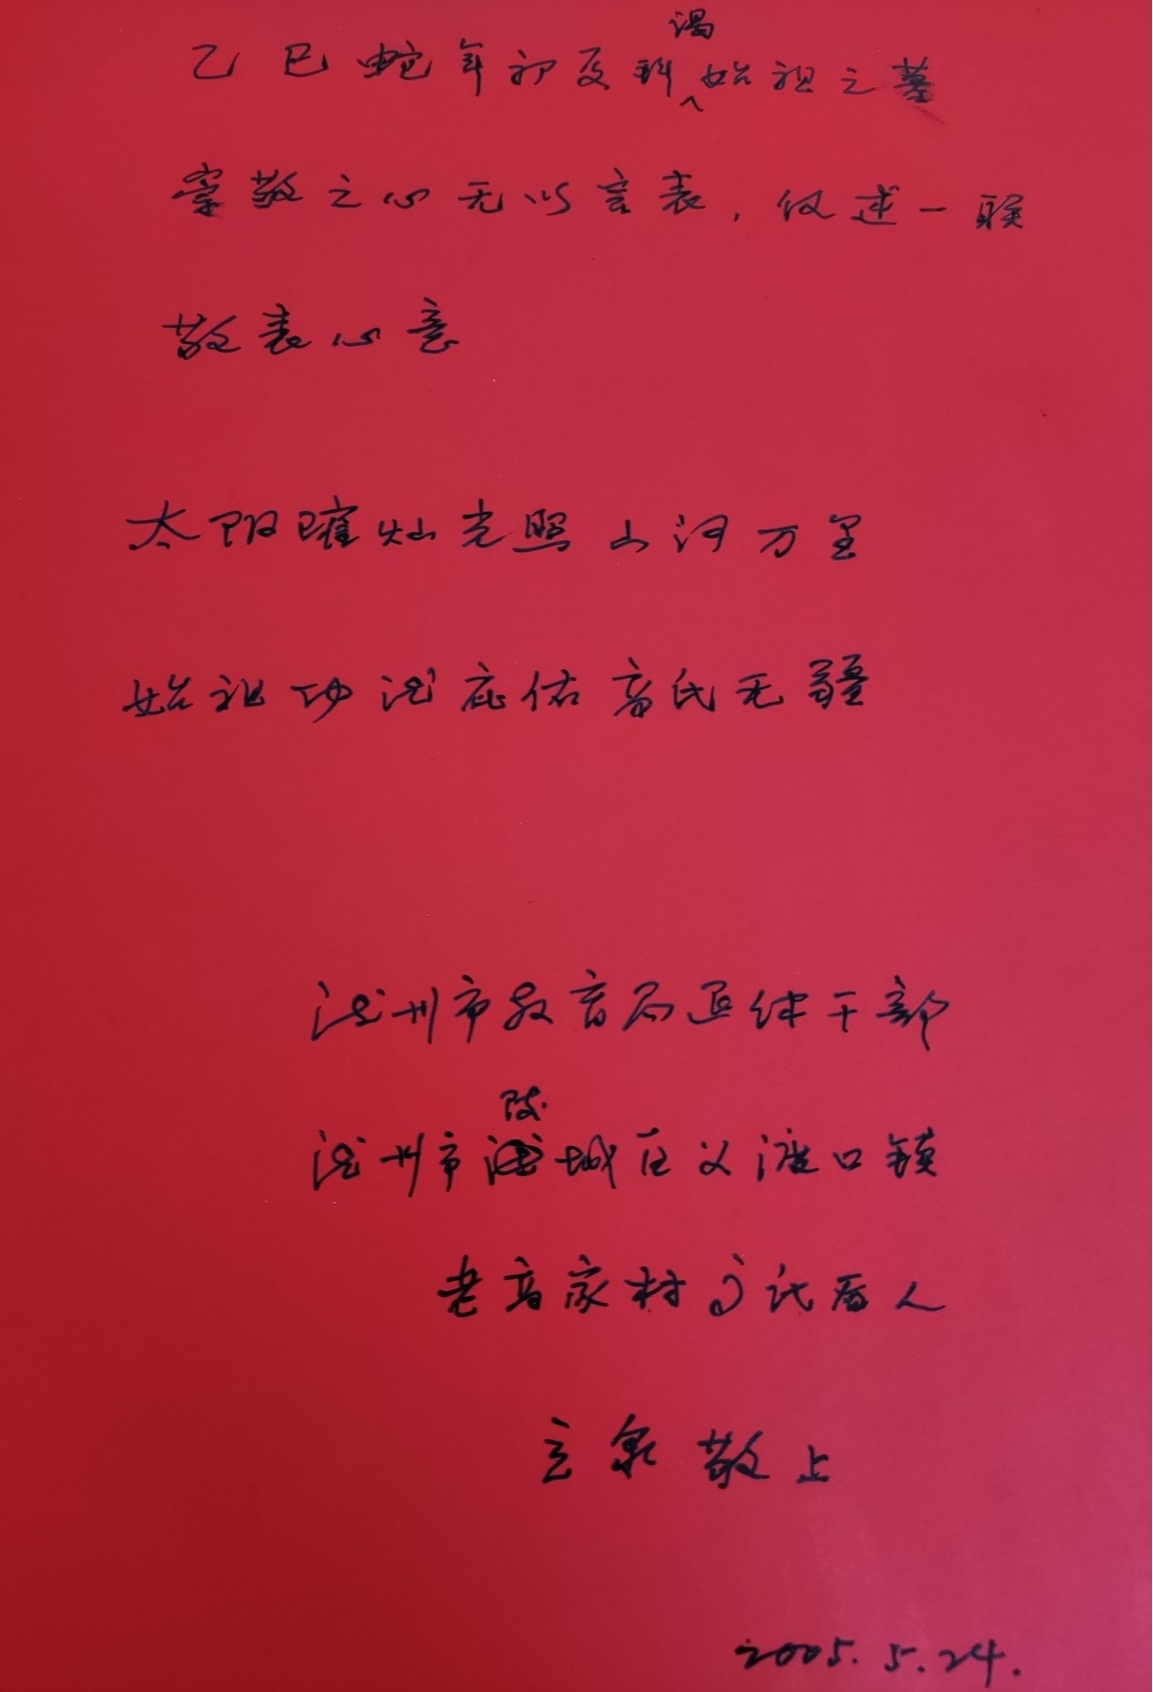 乙巳蛇年初夏拜谒始祖之墓
崇敬之心无以言表，仅述一联
敬表心意
太阳璀灿光照山河万里
始祖功德庇佑高氏无疆
德州市教育局退休干部
德州市陵城区义渡口镇
老高家村高氏后人
泉敬上
2005.5.24.